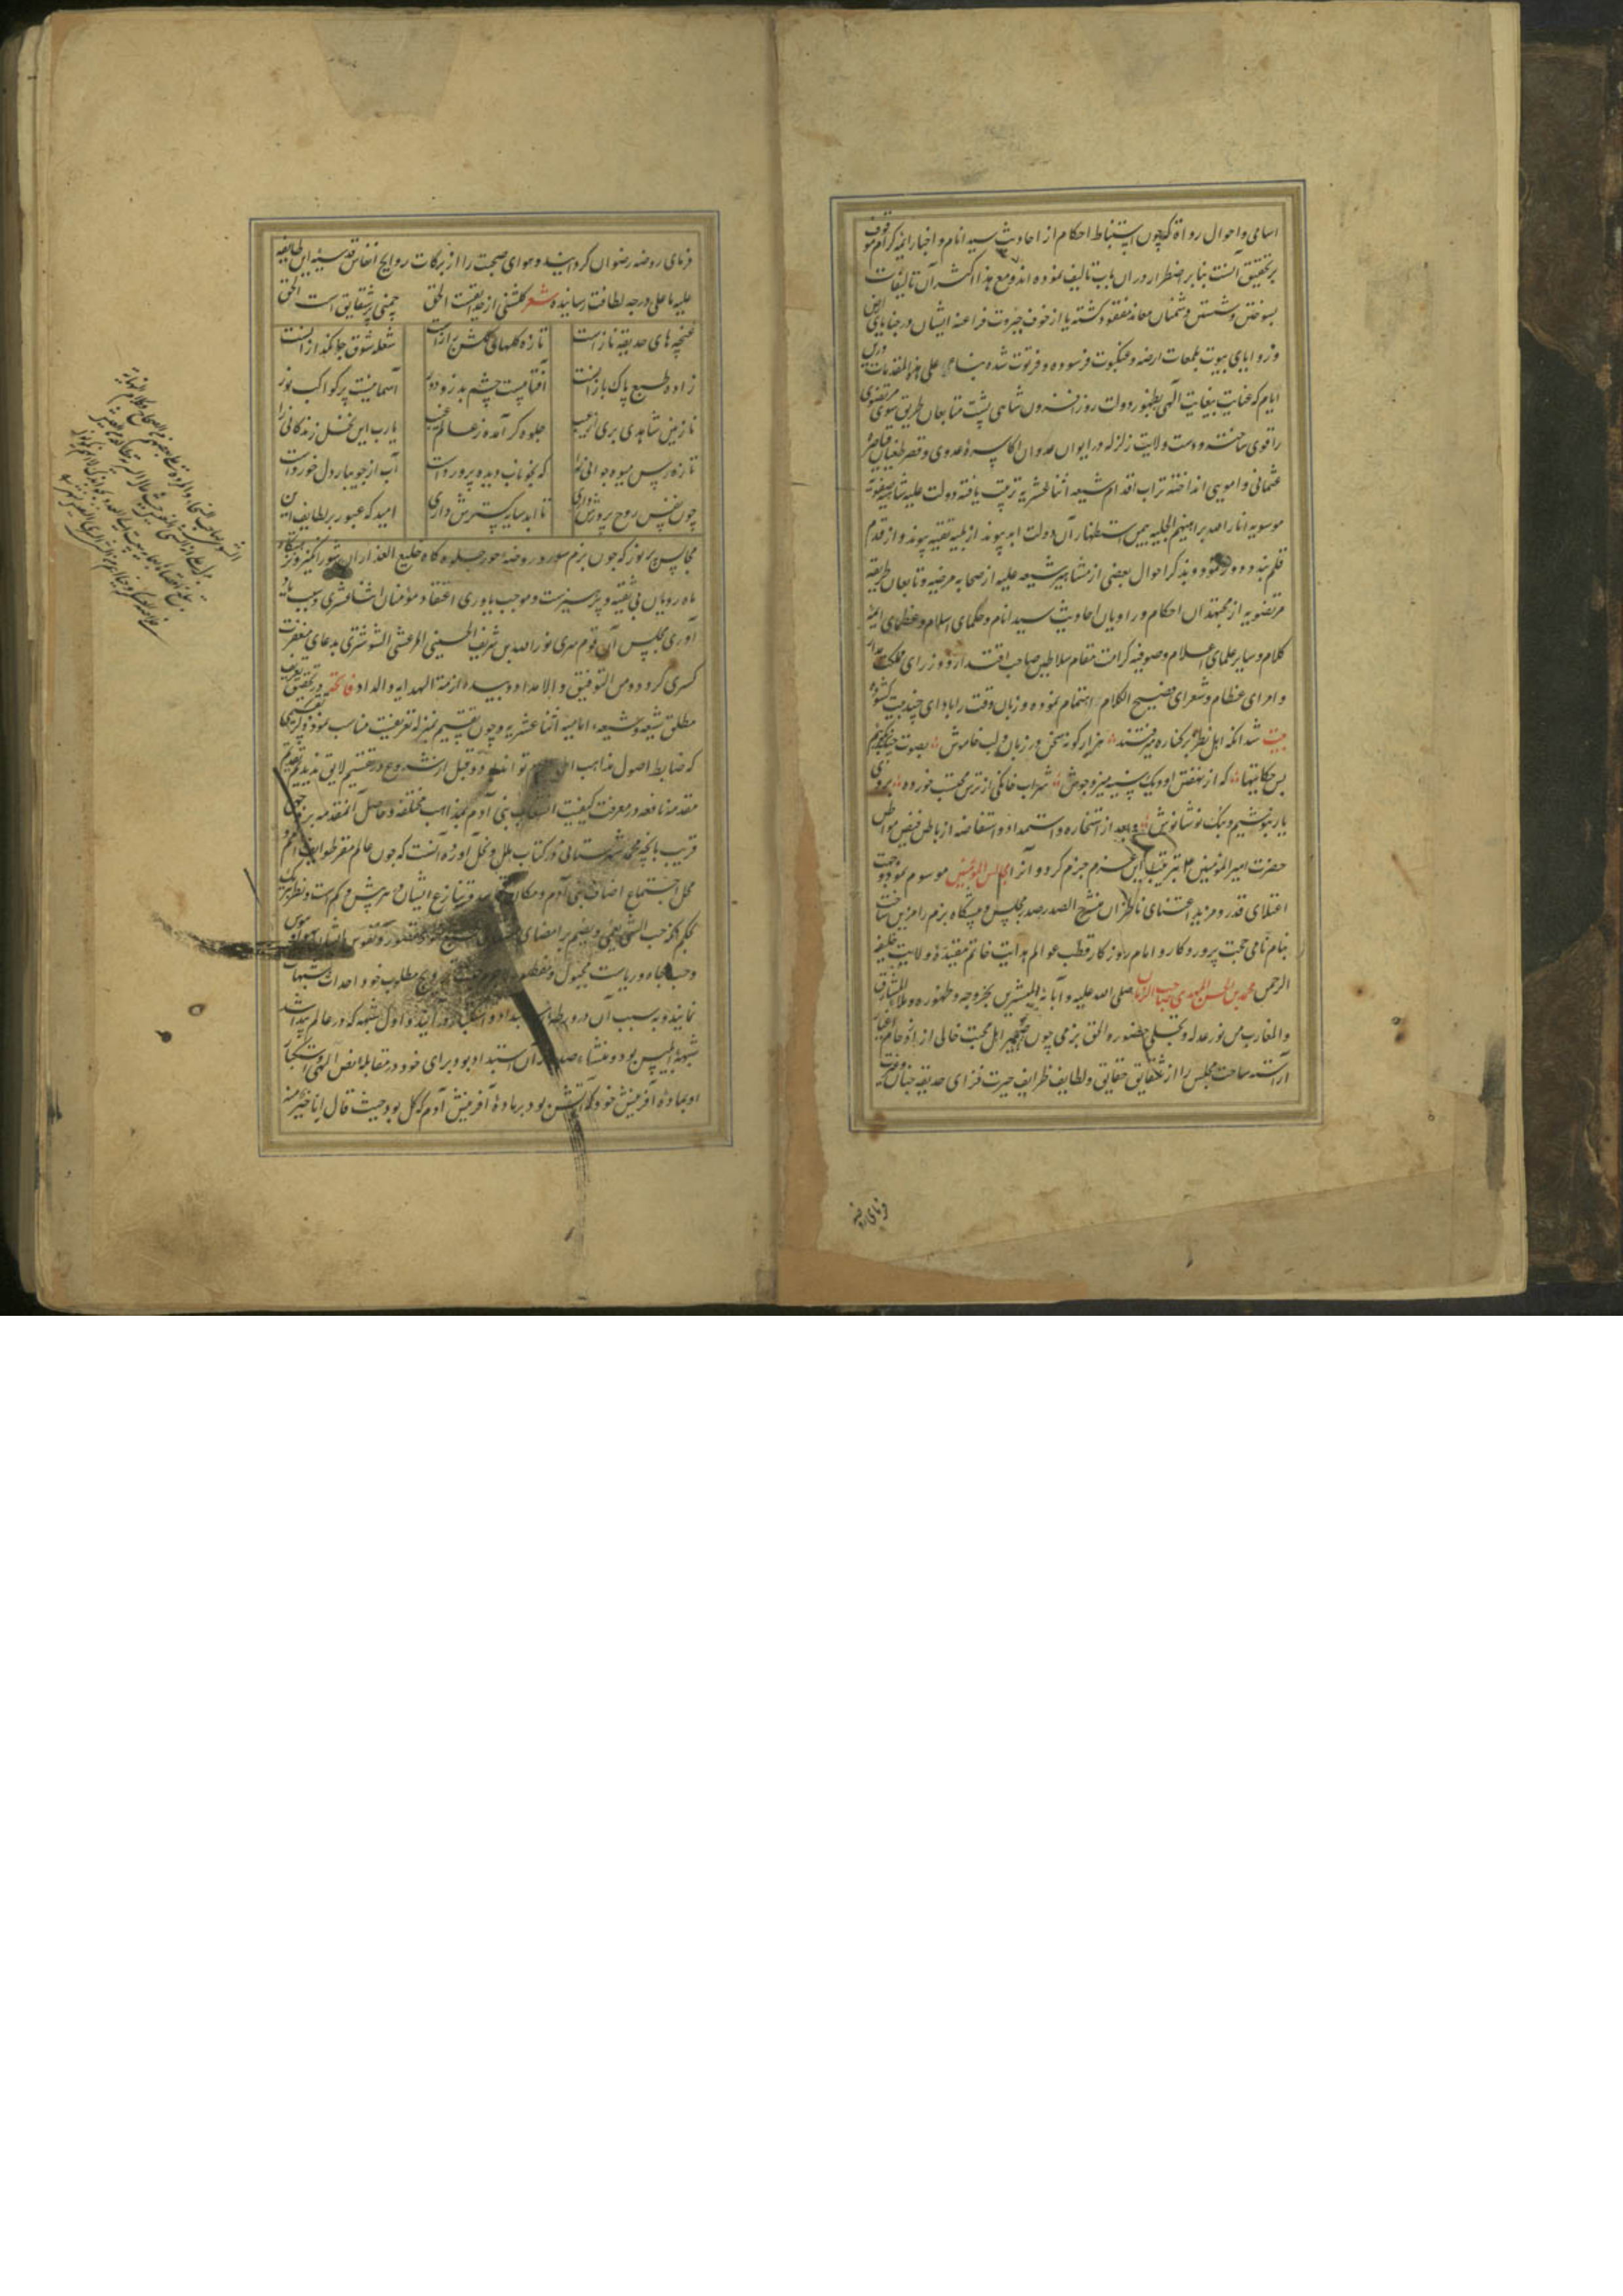 اسامی و احوال رواة که چون استنباط احکام از احادیث سید انام و اخبار ائمه کرام موقوف
بر تحقیق آنست بنابر اضطرار در ان باب تالیف نموده اند و مع هذا اکثر آن تالیفات
بسوختن و شستن دشمنان معاند مفقود کشته یا از خوف جبروت فراعنه ایشان در خبایای ارض
و زوایای بیوت بلمعات ارضه و عنکبوت فرسوده و فرتوت شده بناء علی هذه المقدمات درین
ایام که عنایت بیغایت الهی بظهور دولت روز افزون شاهی پشت متابعان طریق سوی مرتضوی
را قوی ساخته و دست ولایت زلزله در ایوان عدوان اکاسره عدوی و قصر طغیان قیاصره
عثمانی و امویی انداخته تراب اقدام شیعه اثنا عشریه تربیت یافته دولت علیه شاهیه صفویه
موسویه انار الله براهینهم الجلیه بیمن استظهار آن دولت ابد پیوند از بلیه تقیه پیوند و از قدم
قلم بند دور نمود و بذکر احوال بعضی از مشاهیر شیعه علیه از صحابه مرضیه و تابعان طریقه
مرتضویه از مجتهدان احکام و راویان احادیث سید انام و حکمای اسلام و عظمای ائمه
کلام و سایر علمای اعلام و صوفیه کرامت مقام سلاطین صاحب اقتدار و وزرای مملکت مدار
و امرای عظام و شعرای فصیح الکلام اهتمام نموده و زبان وقت را بادای چند بیت کشوده
بیت شد انکه اهل نظر بر کناره میرفتند هزار کونه سخن در زبان و لب خاموش بصوت چنک بکویم
بس حکایتها که از نهفتن او دیک سینه میزد جوش شراب خانکی از ترس محتسب خورده بروی
یار بنوشیم و بانک نوشانوش و بعد از استخاره و استمداد و استفاضه از باطن فیض مواطن
حضرت امیر المومنین بترتیب این عزم جزم کرد و آنرا مجالس المؤمنین موسوم نمود و جهت
اعتلای قدر و مزید اعتنای ناظران منشرح الصدر صدر مجلس و پیشکاه بزم را مزین ساخت
بنام نامی حجت پروردکار و امام روزکار قطب عوالم هدایت خاتم مقیده ولایت خلیفه
الرحمن محمد بن الحسن المهدی صاحب الزمان صلی الله علیه و آبائه المبشرین بخروجه و ظهوره و ملأ المشارق
و المغارب من نور عدله و تجلی حضوره الحق بزمی چون ضمیر اهل محبت خالی از ازدحام اغیار
آراسته ساحت مجلس را از شقایق حقایق و لطایف ظرایف حیرت فزای حدیقه جنان و غیرت
فرمای روضه
فرمای روضه رضوان کردانید و هوای صحبت را از برکات روایح انفاس قدسیه این طایفه
علیه باعلی درجه لطافت رسانیده شعر کلشنی از حدیقت الحق چمنی پر شقایق است الحق
غنچه های حدیقه نازاست تازه کلهای کلشن رازاست شعله شوق جان کداز انست
زاده طبع پاک بازانست آفتابیست چشم بد زو دور آسمانیست پر کواکب نور
نازنین شاهدی بری از عیب جلوه کر آمده ز عالم غیب یارب این نخل زندکانی را
تازه رس میوه جوانی را که بخوناب دیده پرورداست آب از جویبار دل خورداست
چون نفس روح پرورش داری تا ابد سایه کسترش داری امید که عبور بر لطایف این
مجالس پر نور که چون بزم سور در روضه حور جلوه کاه خلیع العذاران شور انکیز و نزهتکاه
ماه رویان بی تقیه و پرهیزست و موجب یاوری اعتقاد مؤمنان اثنا عشری و سبب یاد
آوری مجلس آن قوم سری نور الله بن شریف الحسینی المرعشی الشوشتری بدعای مغفرت
کستری کردد و من الله التوفیق و الامداد و بیده ازمة الهدایه و السداد فاتحه در تحقیق تعریف
مطلق شیعه و شیعه امامیه اثنا عشریه و چون تقسیم بمنزله تعریفست مناسب نمود ذکر تقسیمی
که ضابط اصول مذاهب تواند بود و قبل از شروع در تقسیم لایق نه بدید تقدیم
مقدمه نافعه در معرفت کیفیت انشعاب بنی آدم بمذاهب مختلفه و حاصل آنمقدمه بر وجهی
قریب بانچه محمد شهرستانی در کتاب ملل و نحل آورده آنست که چون عالم مقر طوایف امم و
محل اجتماع اصناف بنی آدم و مکان تنازع ایشان در هر بیش و کم است و نظر هر یک
بحکم حب الشی یعمی و یصم بر امضای
و حب جاه و ریاست مجبول و مفطور ترویج مطلوب خود احداث شبهات
نمایند و به سبب آن در ورطه استبداد و استکبار در آیند و اول شبهه که در عالم پیدا شد
شبهه ابلیس بود و منشاء صدور آن استبداد بود برای خود در مقابله نص الهی و استکبار
او بماده آفرینش خود که آتش بود بر ماده آفرینش آدم که کل بود حیث قال انا خیر منه